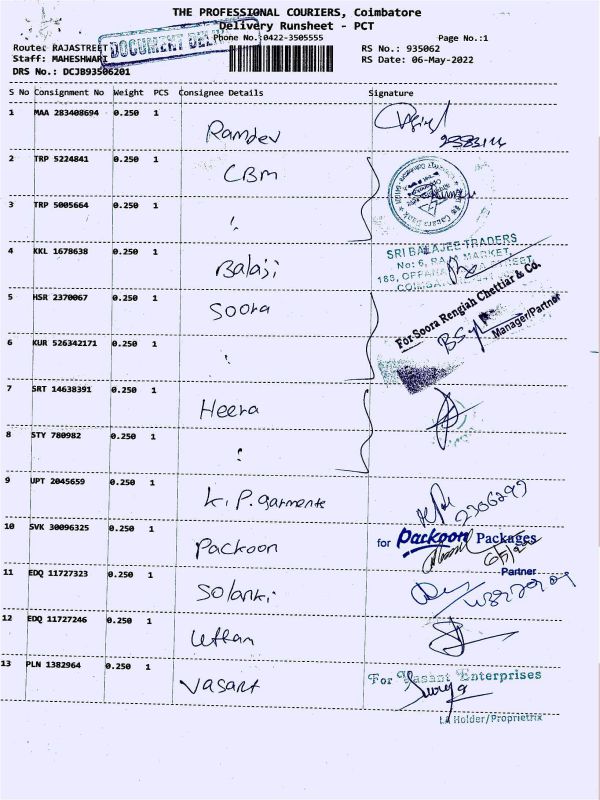 THE PROFESSIONAL COURIERS, Coimbatore
Delivery Runsheet - PCT
Phone No.:0422-3505555
Page No.:1
Route: RAJASTREET
Staff: MAHESHWARI
DRS No.: DCJB93506201
DOCUMENT
RS No.: 935062
RS Date: 06-May-2022
S No Consignment No Weight PCS Consignee Details Signature
1 MAA 283408694 0.250 1 Ramdev
2 TRP 5224841 0.250 1 CBM
3 TRP 5005664 0.250 1
4 KKL 1678638 0.250 1 Balaji
SRI BALAJEE TRADERS
No: 6, RAJA MARKET,
5 HSR 2370067 0.250 1 Soora
For Soora Rengiah Chettiar & Co.
Manager/Partner
6 KUR 526342171 0.250 1
7 SRT 14638391 0.250 1 Heera
8 STY 780982 0.250 1
9 UPT 2045659 0.250 1 K.P. garments
10 SVK 30096325 0.250 1 Packoon
for Packoon Packages
Partner
11 EDQ 11727323 0.250 1 Solanki
12 EDQ 11727246 0.250 1 Uttam
13 PLN 1382964 0.250 1 Vasant
For Vasant Enterprises
Surya
Holder/Proprietrix